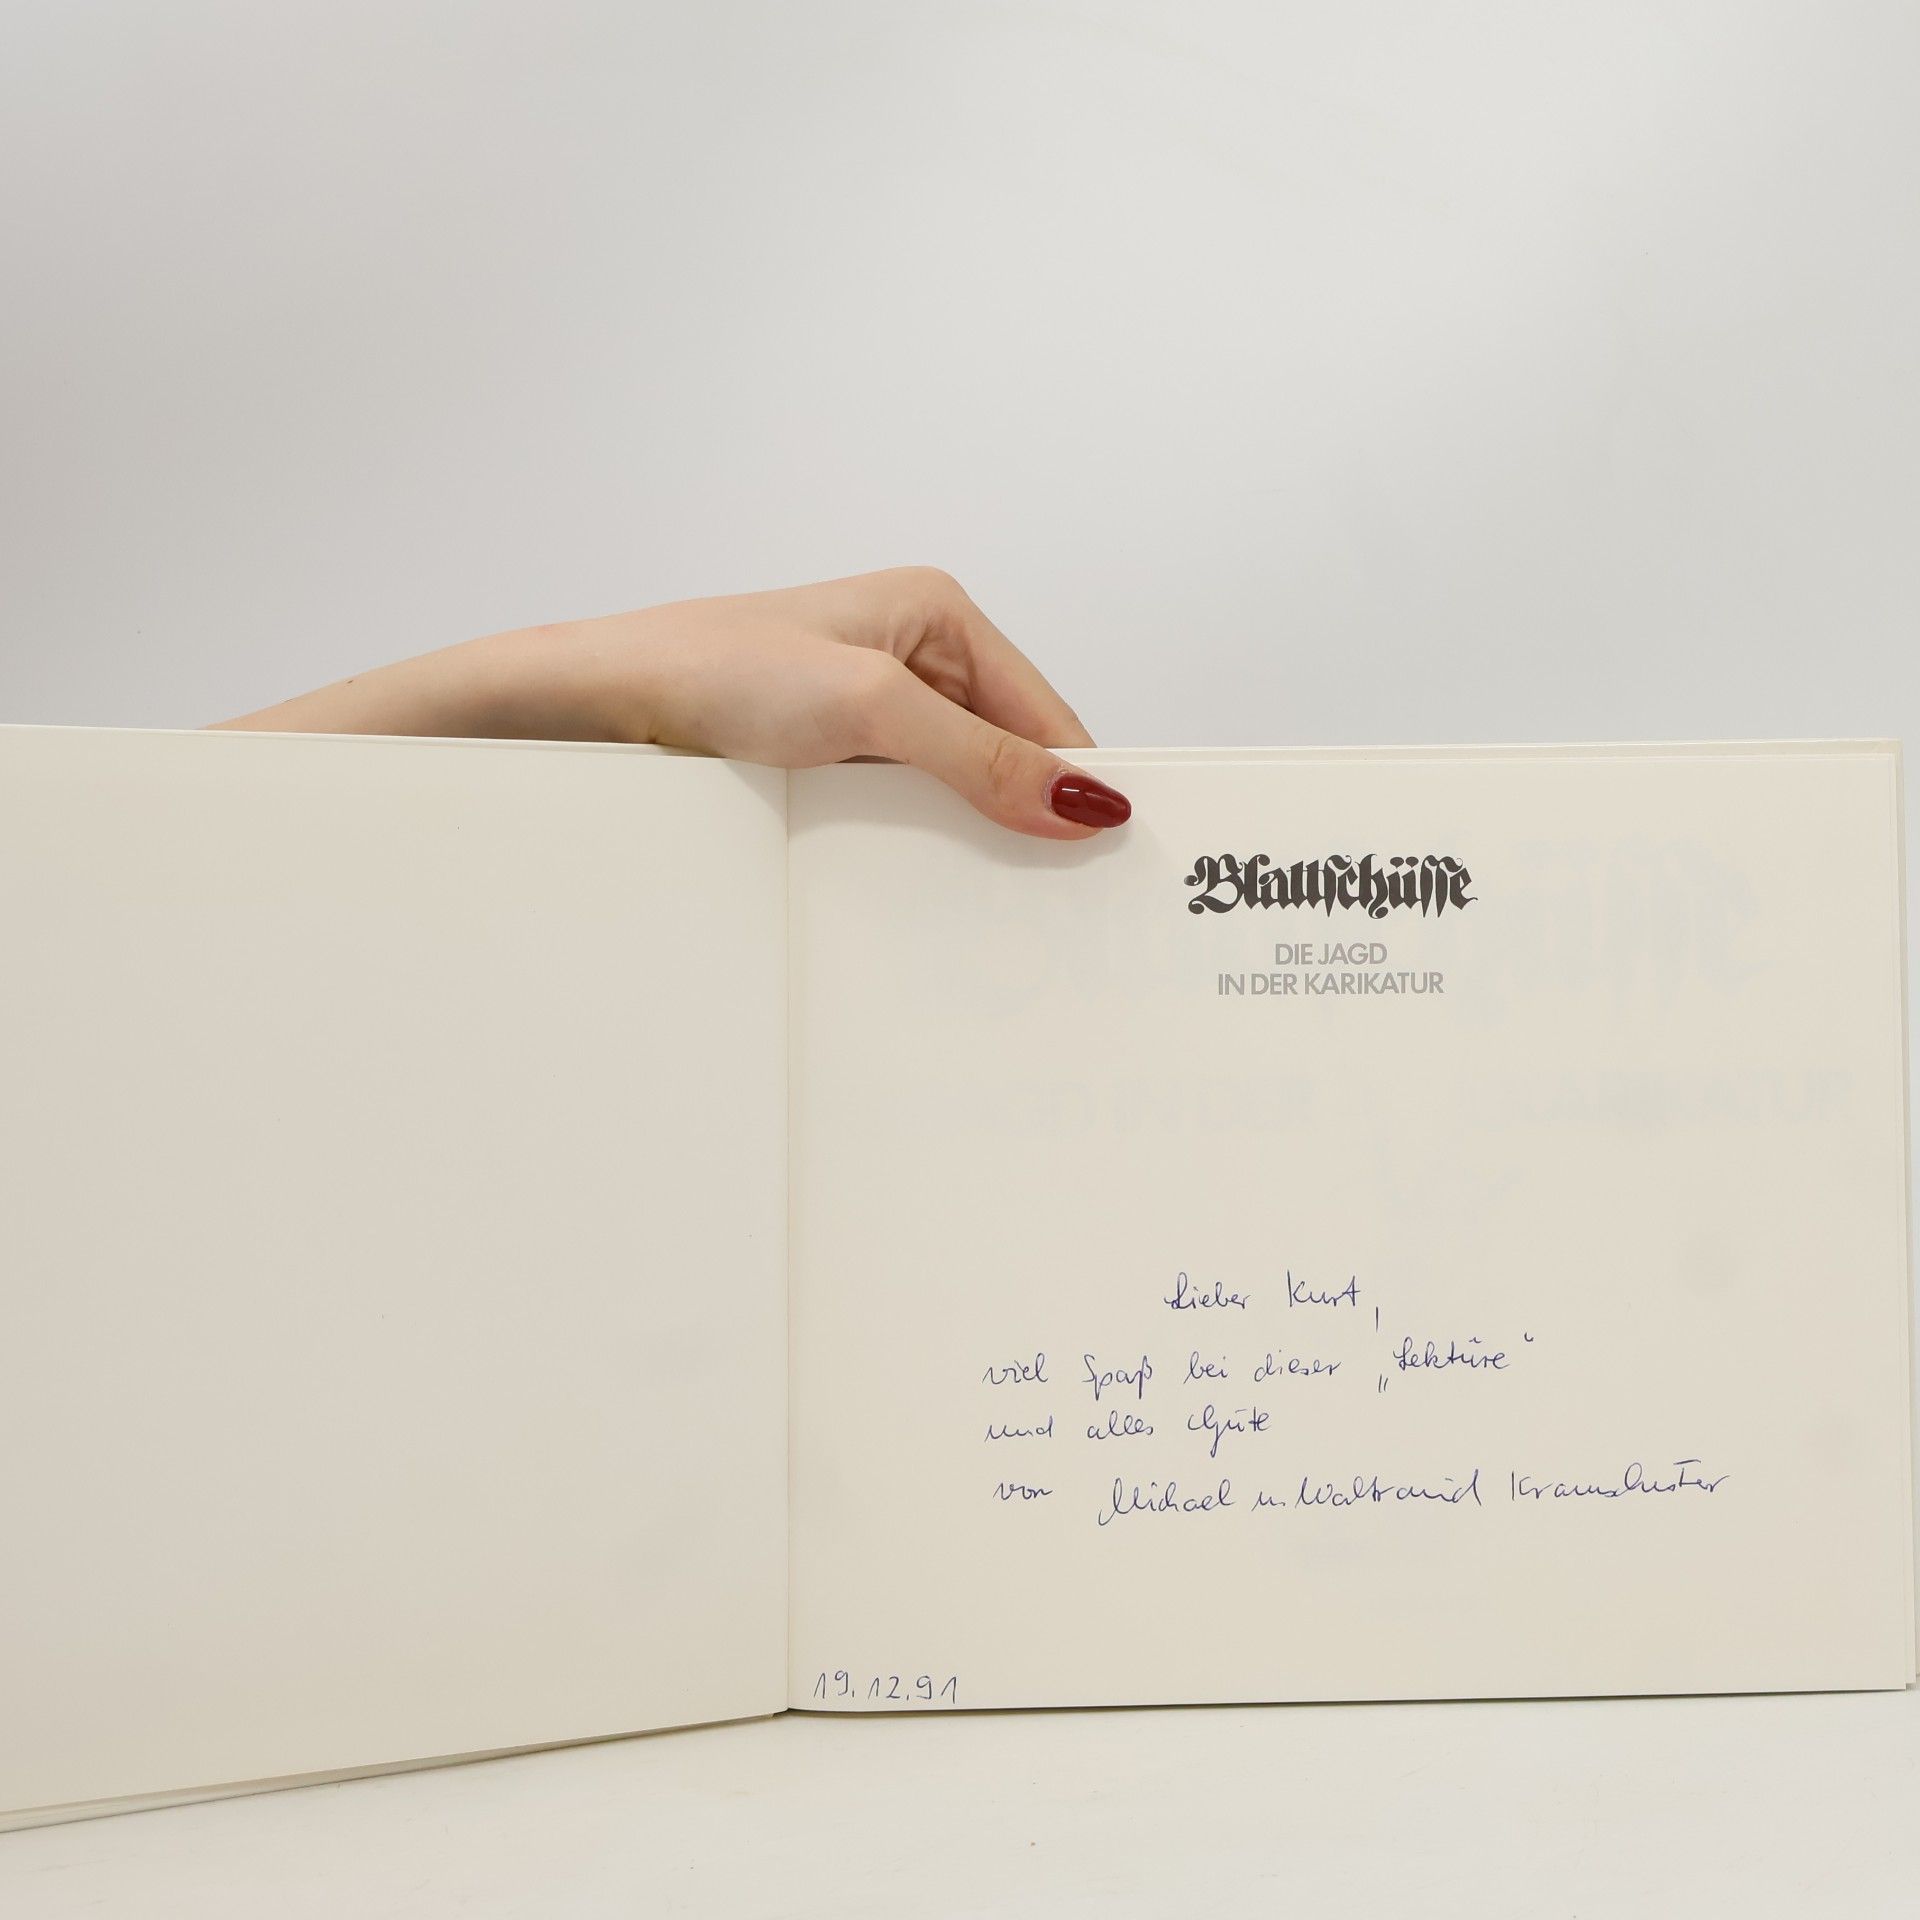 Blattschüsse
DIE JAGD
IN DER KARIKATUR
Lieber Kurt,
viel Spaß bei dieser „Lektüre“
und alles Gute
von Michael u. Waltraud Kramschuster
19.12.91